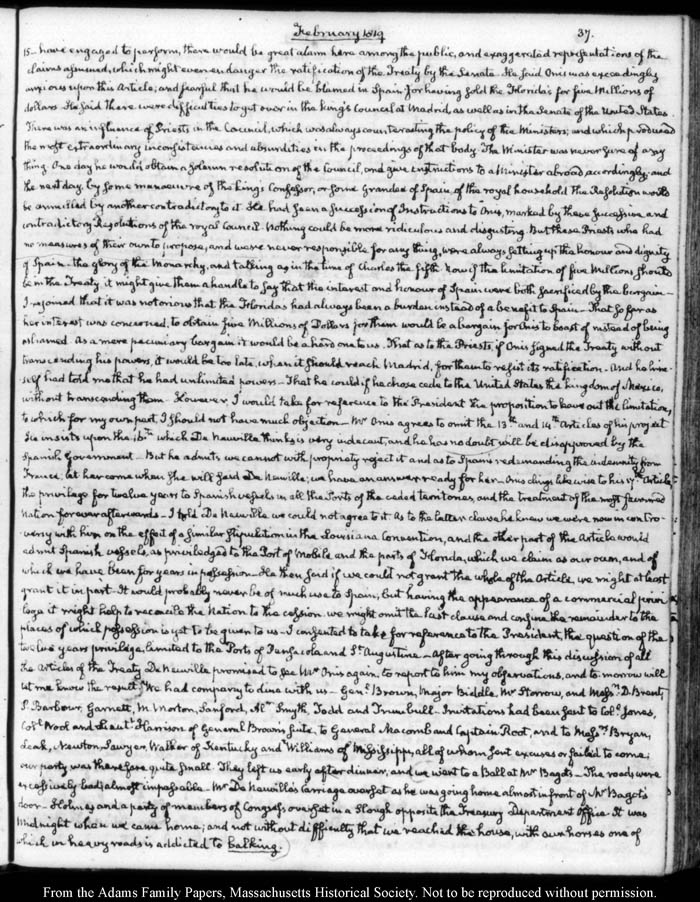 February 1819
37.
15- have engaged to perform, there would be great alarm here among the public, and exaggerated representations of the
claims assumed, which might even endanger the ratification of the Treaty by the Senate. He said Onis was exceedingly
anxious upon this Article; and fearful that he would be blamed in Spain for having sold the Florida's for five Millions of
dollars. He said there were difficulties to get over in the king's council at Madrid, as well as in the Senate of the United States
There was an influence of Priests in the Council, which was always counteracting the policy of the Ministers; and which produced
the most extraordinary inconsistencies and absurdities in the proceedings of that body. The Minister was never sure of any
thing. One day he would obtain a solemn resolution of the Council, and give instructions to a Minister abroad accordingly; and
the next day, by some manoeuvre of the king's Confessor, or some grandee of Spain, of the royal household the Resolution would
be annulled by another contradictory to it. He had seen a succession of Instructions to Onis, marked by these successive and
contradictory Resolutions of the royal Council. Nothing could be more ridiculous and disgusting. But these Priests who had
no measures of their own to propose, and were never responsible for any thing, were always setting up the honour and dignity
of Spain- the glory of the Monarchy, and talking as in the time of Charles the fifth. Now if the limitation of five Millions should
be in the Treaty it might give them a handle to say that the interest and honour of Spain were both sacrificed by the bargain-
I rejoined that it was notorious that the Floridas had always been a burden instead of a benefit to Spain- That so far as
her interest was concerned, to obtain five Millions of Dollars for them would be a bargain for Onis to boast of instead of being
ashamed. As a mere pecuniary bargain it would be a hard one to us. That as to the Priests, if Onis signed the Treaty without
transcending his powers, it would be too late, when it should reach Madrid, for them to refuse its ratification. And he him-
self had told me that he had unlimited powers- That he could if he chose cede to the United States the kingdom of Mexico,
without transcending them- However, I would take for reference to the President the proposition to leave out the limitation,
to which for my own part, I should not have much objection- Mr Onis agrees to omit the 13th and 14th Articles of his project
He insists upon the 16th which De Neuville thinks is very indecent, and he has no doubt will be disapproved by the
Spanish Government. But he admits we cannot with propriety reject it and as to Spain's redemanding the indemnity from
France, let her come when she will said De Neuville; we have an answer ready for her- Onis clings likewise to his 17th Article
the privilege for twelve years to Spanish vessels in all the Ports of the ceded territories, and the treatment of the most favoured
Nation forever afterwards- I told De Neuville we could not agree to it. As to the latter clause he knew we were now in contro-
versy with him on the effect of a similar stipulation in the Louisiana Convention, and the other part of the Article would
admit Spanish vessels, as priviledged to the Port of Mobile and the parts of Florida, which we claim as our own, and of
which we have been for years in possession- He then said if we could not grant the whole of the Article, we might at least
grant it in part. It would probably never be of much use to Spain, but having the appearance of a commercial privi-
lege it might help to reconcile the Nation to the cession. we might omit the last clause and confine the remainder to the
places of which possession is yet to be given to us- I consented to take for reference to the President, the question of the
twelve years privilege, limited to the Ports of Pensacola and St Augustine- After going through this discussion of all
the Articles of the Treaty De Neuville promised to see Mr Onis again, to report to him my observations, and to-morrow will
let me know the result. We had company to dine with us- Genl Brown, Major Biddle, Mr Storrow, and Messrs D. Brent,
P. Barbour, Garnett, M. Norton, Sanford, Alr Smyth, Todd and Trumbull- Invitations had been sent to Colo Jones,
Colo Wool and Lieutt Harrison of General Brown's suite, to General Macomb and Captain Root, and to Messrs Bryan,
Leak, Newton, Sawyer, Walker of Kentucky and Williams of Mississippi, all of whom sent excuses or failed to come;
our party was therefore quite small. They left us early after dinner, and we went to a Ball at Mr Bagot's- The roads were
excessively bad, almost impassable- Mr De Neuville's Carriage overset as he was going home almost in front of Mr Bagot's
door- Holmes and a party of members of Congress overset in a Slough opposite the Treasury Department Office- It was
Midnight when we came home; and not without difficulty that we reached the house, with our horses one of
which in heavy roads is addicted to balking.
From the Adams Family Papers, Massachusetts Historical Society. Not to be reproduced without permission.